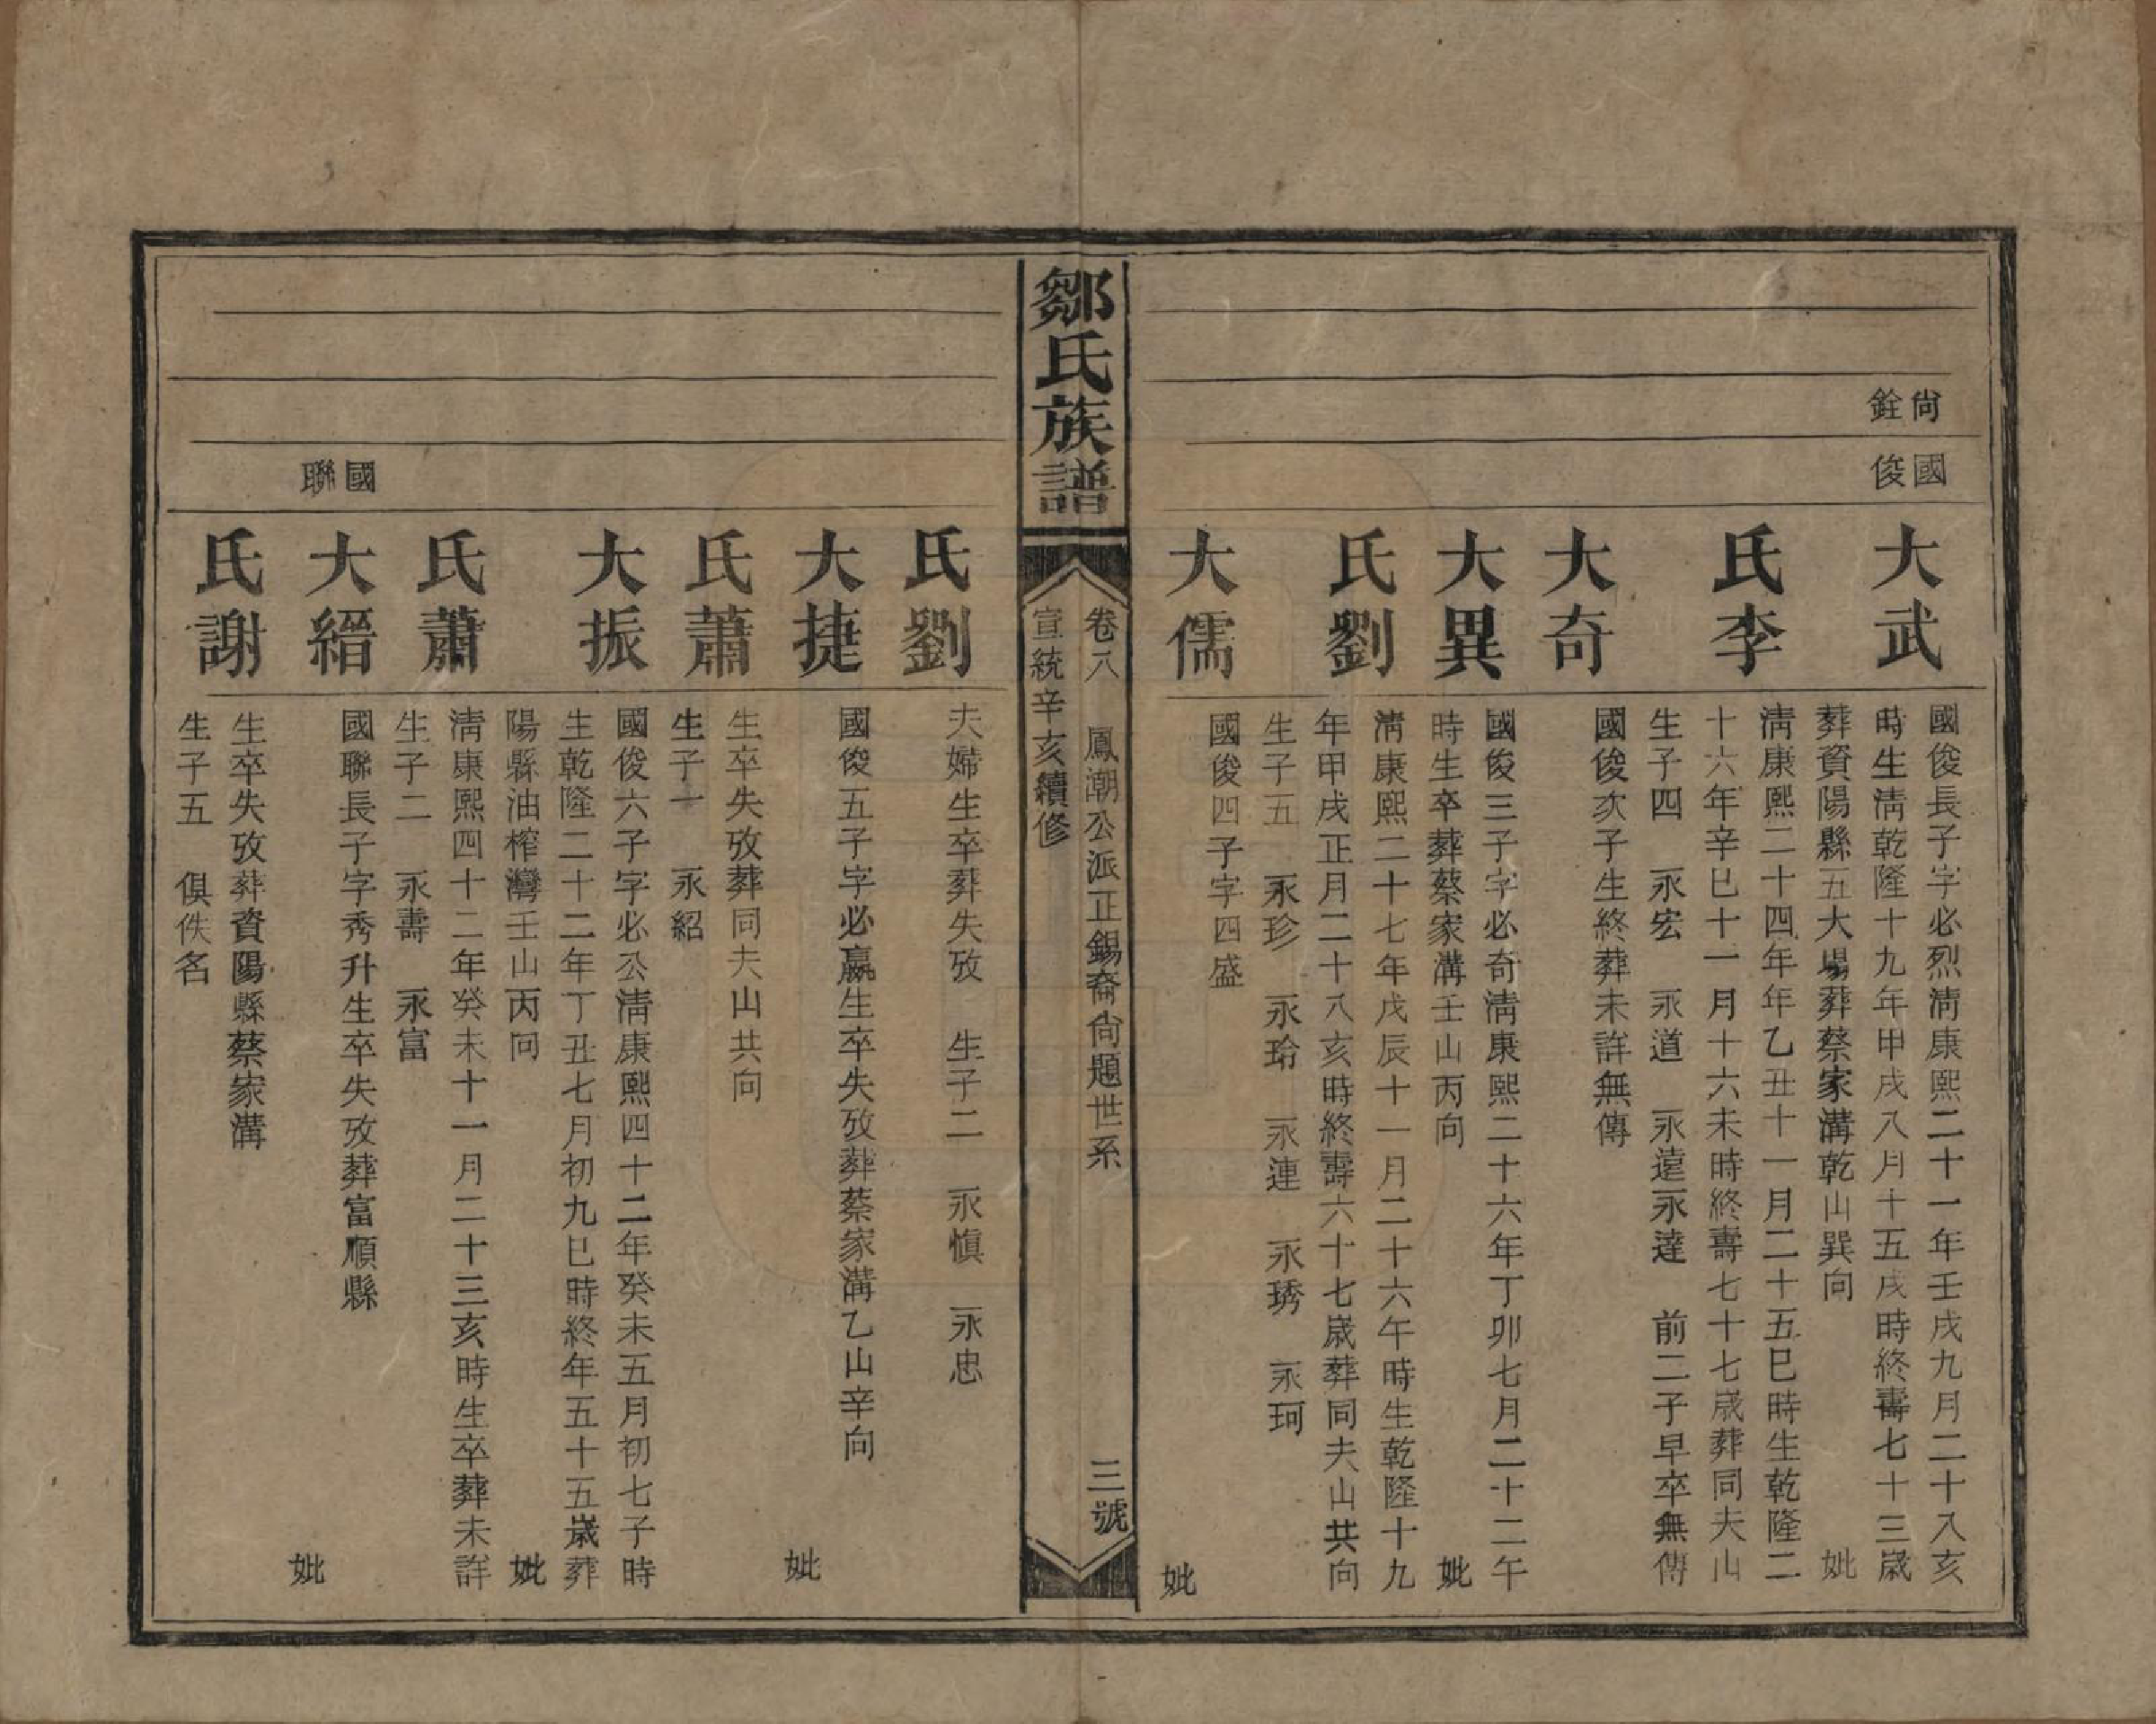 尚銓
國俊
大武
國俊長子字必烈淸康熙二十一年壬戌九月二十八亥
時生淸乾隆十九年甲戌八月十五戌時終壽七十三歲
葬資陽縣五大場葬蔡家溝乾山巽向　妣
氏李
淸康熙二十四年年乙丑十一月二十五巳時生乾隆二
十六年辛巳十一月十六未時終壽七十七歲葬同夫山
生子四　永宏　永道　永遠永達　前二子早卒無傳
大奇
國俊次子生終葬未詳無傳
大異
國俊三子字必奇淸康熙二十六年丁卯七月二十二午
時生卒葬蔡家溝壬山丙向　妣
氏劉
淸康熙二十七年戊辰十一月二十六午時生乾隆十九
年甲戌正月二十八亥時終壽六十七歲葬同夫山共向
生子五　永珍　永玲　永連　永琇　永珂
大儒
國俊四子字四盛
妣
鄒氏族譜
卷八　鳳潮公派正錫裔尙題世系　三號
宣統辛亥續修
氏劉
夫婦生卒葬失攷　生子二　永愼　永忠
大捷
國俊五子字必贏生卒失攷葬蔡家溝乙山辛向
妣
氏蕭
生卒失攷葬同夫山共向
生子一　永紹
大振
國俊六子字必公淸康熙四十二年癸未五月初七子時
生乾隆二十二年丁丑七月初九巳時終年五十五歲葬
陽縣油榨灣壬山丙向　妣
氏蕭
淸康熙四十二年癸未十一月二十三亥時生卒葬未詳
生子二　永壽　永富
國聯
大縉
國聯長子字秀升生卒失攷葬富順縣
妣
氏謝
生卒失攷葬資陽縣蔡家溝
生子五　俱佚名